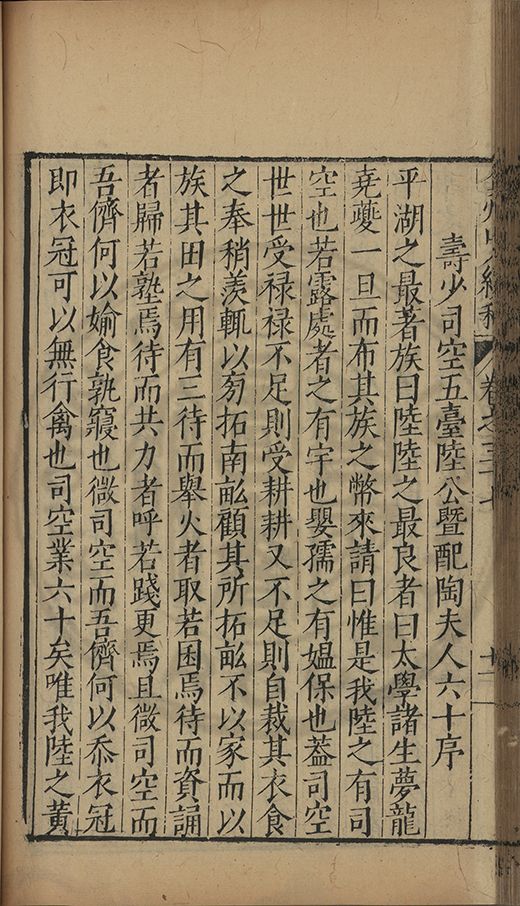 弇州山人續稿 卷之三十七
壽少司空五臺陸公暨配陶夫人六十序
平湖之最著族曰陸陸之最良者曰太學諸生夢龍
堯夔一旦而布其族之幣來請曰惟是我陸之有司
空也若露處者之有宇也嬰孺之有媼保也葢司空
世世受祿祿不足則受耕耕又不足則自裁其衣食
之奉稍羨輒以旁拓南畝顧其所拓畝不以家而以
族其田之用有三待而舉火者取若囷焉待而資誦
者歸若塾焉待而共力者呼若踐更焉且微司空而
吾儕何以媮食孰寢也微司空而吾儕何以忝衣冠
即衣冠可以無行禽也司空業六十矣唯我陸之黃